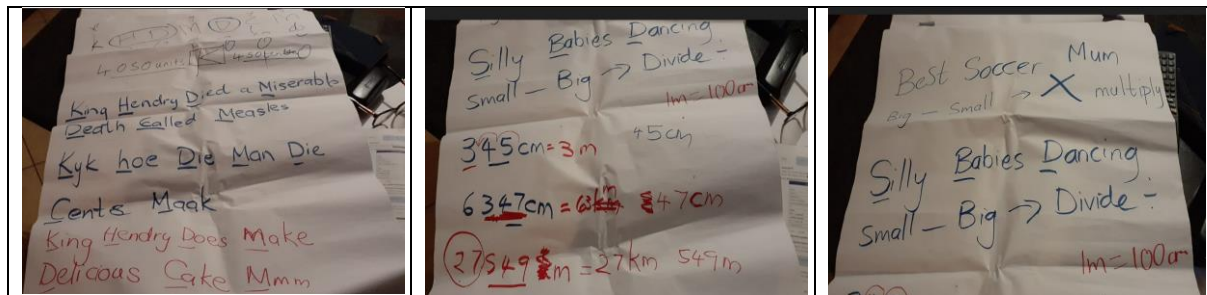 4 050 units
King Hendry Died a Miserable
Death Called Measles
Kyk hoe Die Man Die
Cents Maak
King Hendry Does Make
Delicious Cake Mmm
Silly Babies Dancing
Small – Big → Divide ÷
1m = 100cm
345cm = 3m 45cm
6347cm = 47cm
27549 m = 27km 549m
Best Soccer Mum
Big – Small → X multiply
Silly Babies Dancing
Small – Big → Divide ÷
1m = 100cm